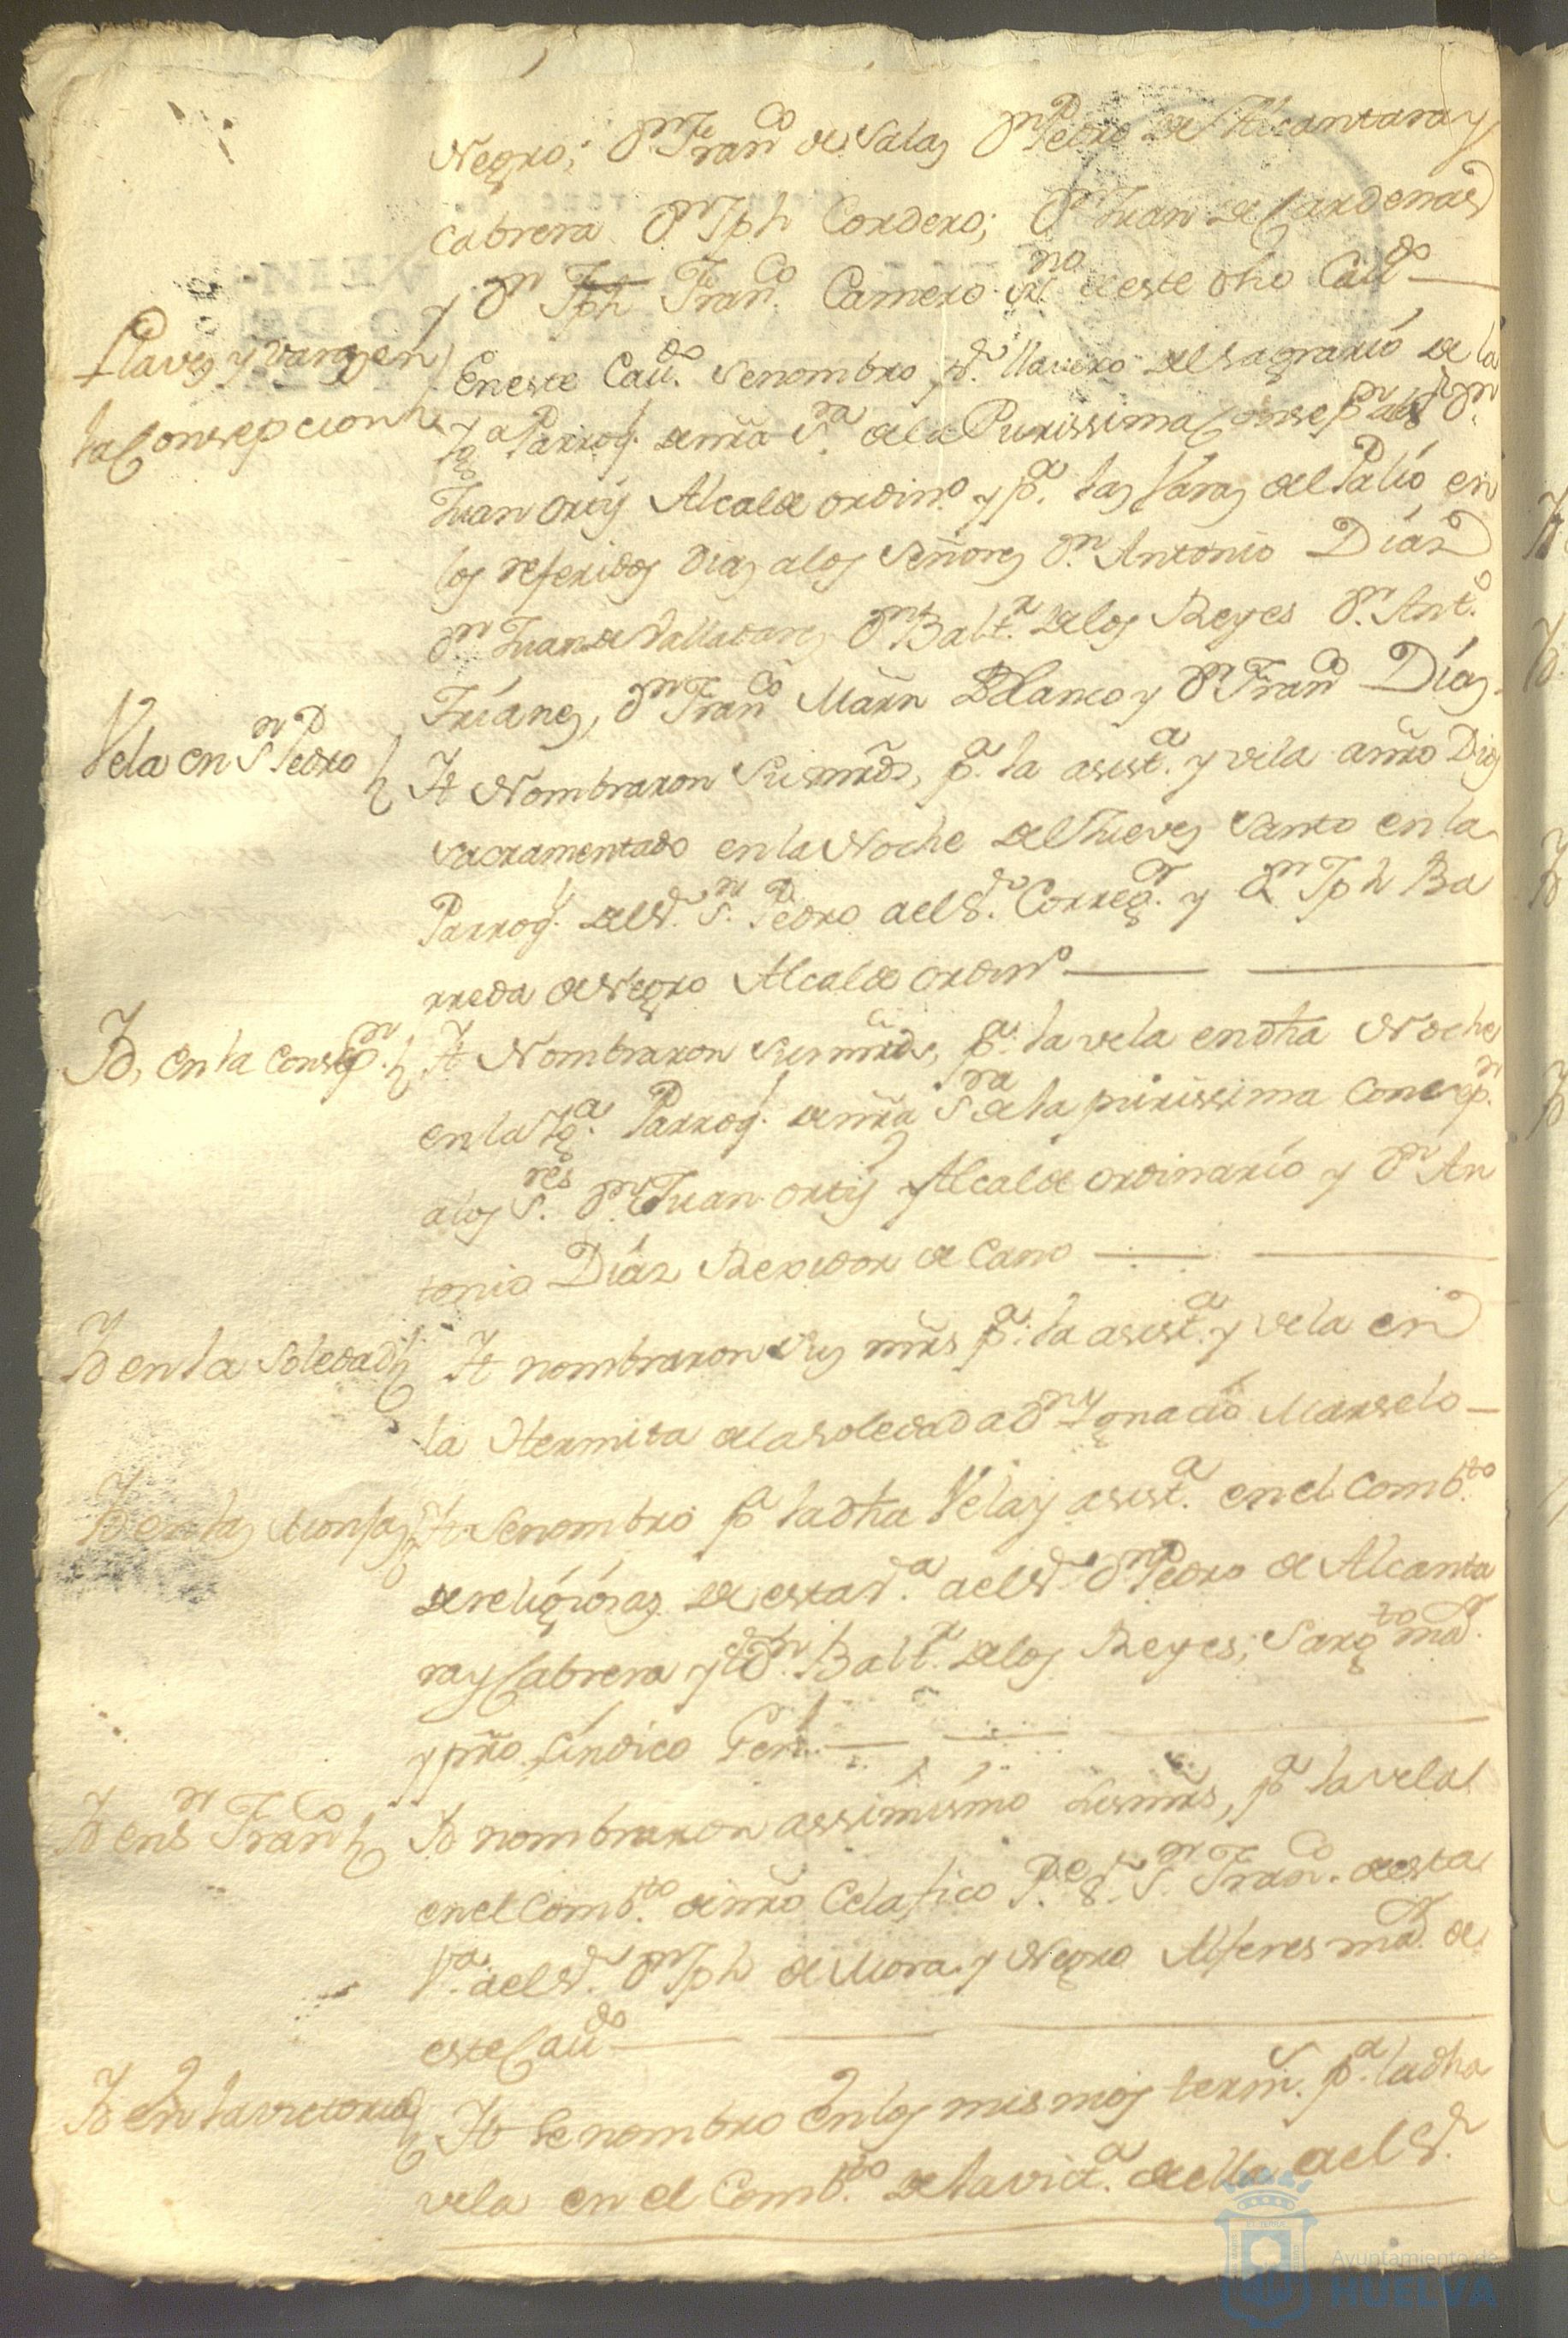 Negro; Dn. Franco de Salas Dn Pedro de Alcantara y
Cabrera Dn Jph Cordero; Dn Juan de Cardenas
y Dn Jph Franco. Camero esno de este dho Cavdo
Llaves y varas en la Consepcion
En este Cavdo. se nombro pr. llavero del sagrario de la
Iga Parroql. de nra Sra. de la Purissima Consepn al Sr Dn.
Juan Ortiz Alcalde ordino. y pa. las varas del Palio en
los referidos dias a los Señores Dn. Antonio Diaz
Dn Juan de Valladares Dn Baltr. de los Reyes Dn. Anto.
Trianes, Dn Franco Marn Blanco y Dn Franco Dias
Vela en Sn Pedro
It Nombraron sus mrds, pa. la asista. y vela a nro Dios
sacramentado en la Noche del Jueves santo en la
Parroql. del Sr. Sn. Pedro a el Sr. Corregr. y Dn Jph Ba
rreda de Negro Alcalde ordino
Yd, en la Consepn.
It Nombraron sus mrds, pa. la vela en dha Noche
en la Iga. Parroql. de nra Sra de la purissima Consepn.
a los Sres. Dn Juan Ortiz Alcalde ordinario y Dn An
tonio Diaz Rexidor de Cano
Yd en la Soledad
It nombraron sus mrds pa. la asista. y vela en
la Hermita de la soledad a Dn Ygnacio Marselo
Yd en las Monjas
It se nombro pa la dha Vela y asista. en el Combto.
de religiosas de esta Va. a el Sr Dn Pedro de Alcanta
ra y Cabrera y Dn. Baltr. de los Reyes; Sargto mor.
y pro. sindico Genl.
Yd en Sn Franco
Yd nombraron assimismo sus mrds, pa la vela
en el Combto. de nro Cerafico Pe. Sr. Sn Franco. de esta
Va. a el Sr. Dn Jph de Mora y Negro Alferes mor. de
este Cavdo
Yd en la victoria
It se nombro en los mismos termos. pa. la dha
vela en el Combto. de la victa. de ella a el Sr.
Ayuntamiento de
HUELVA